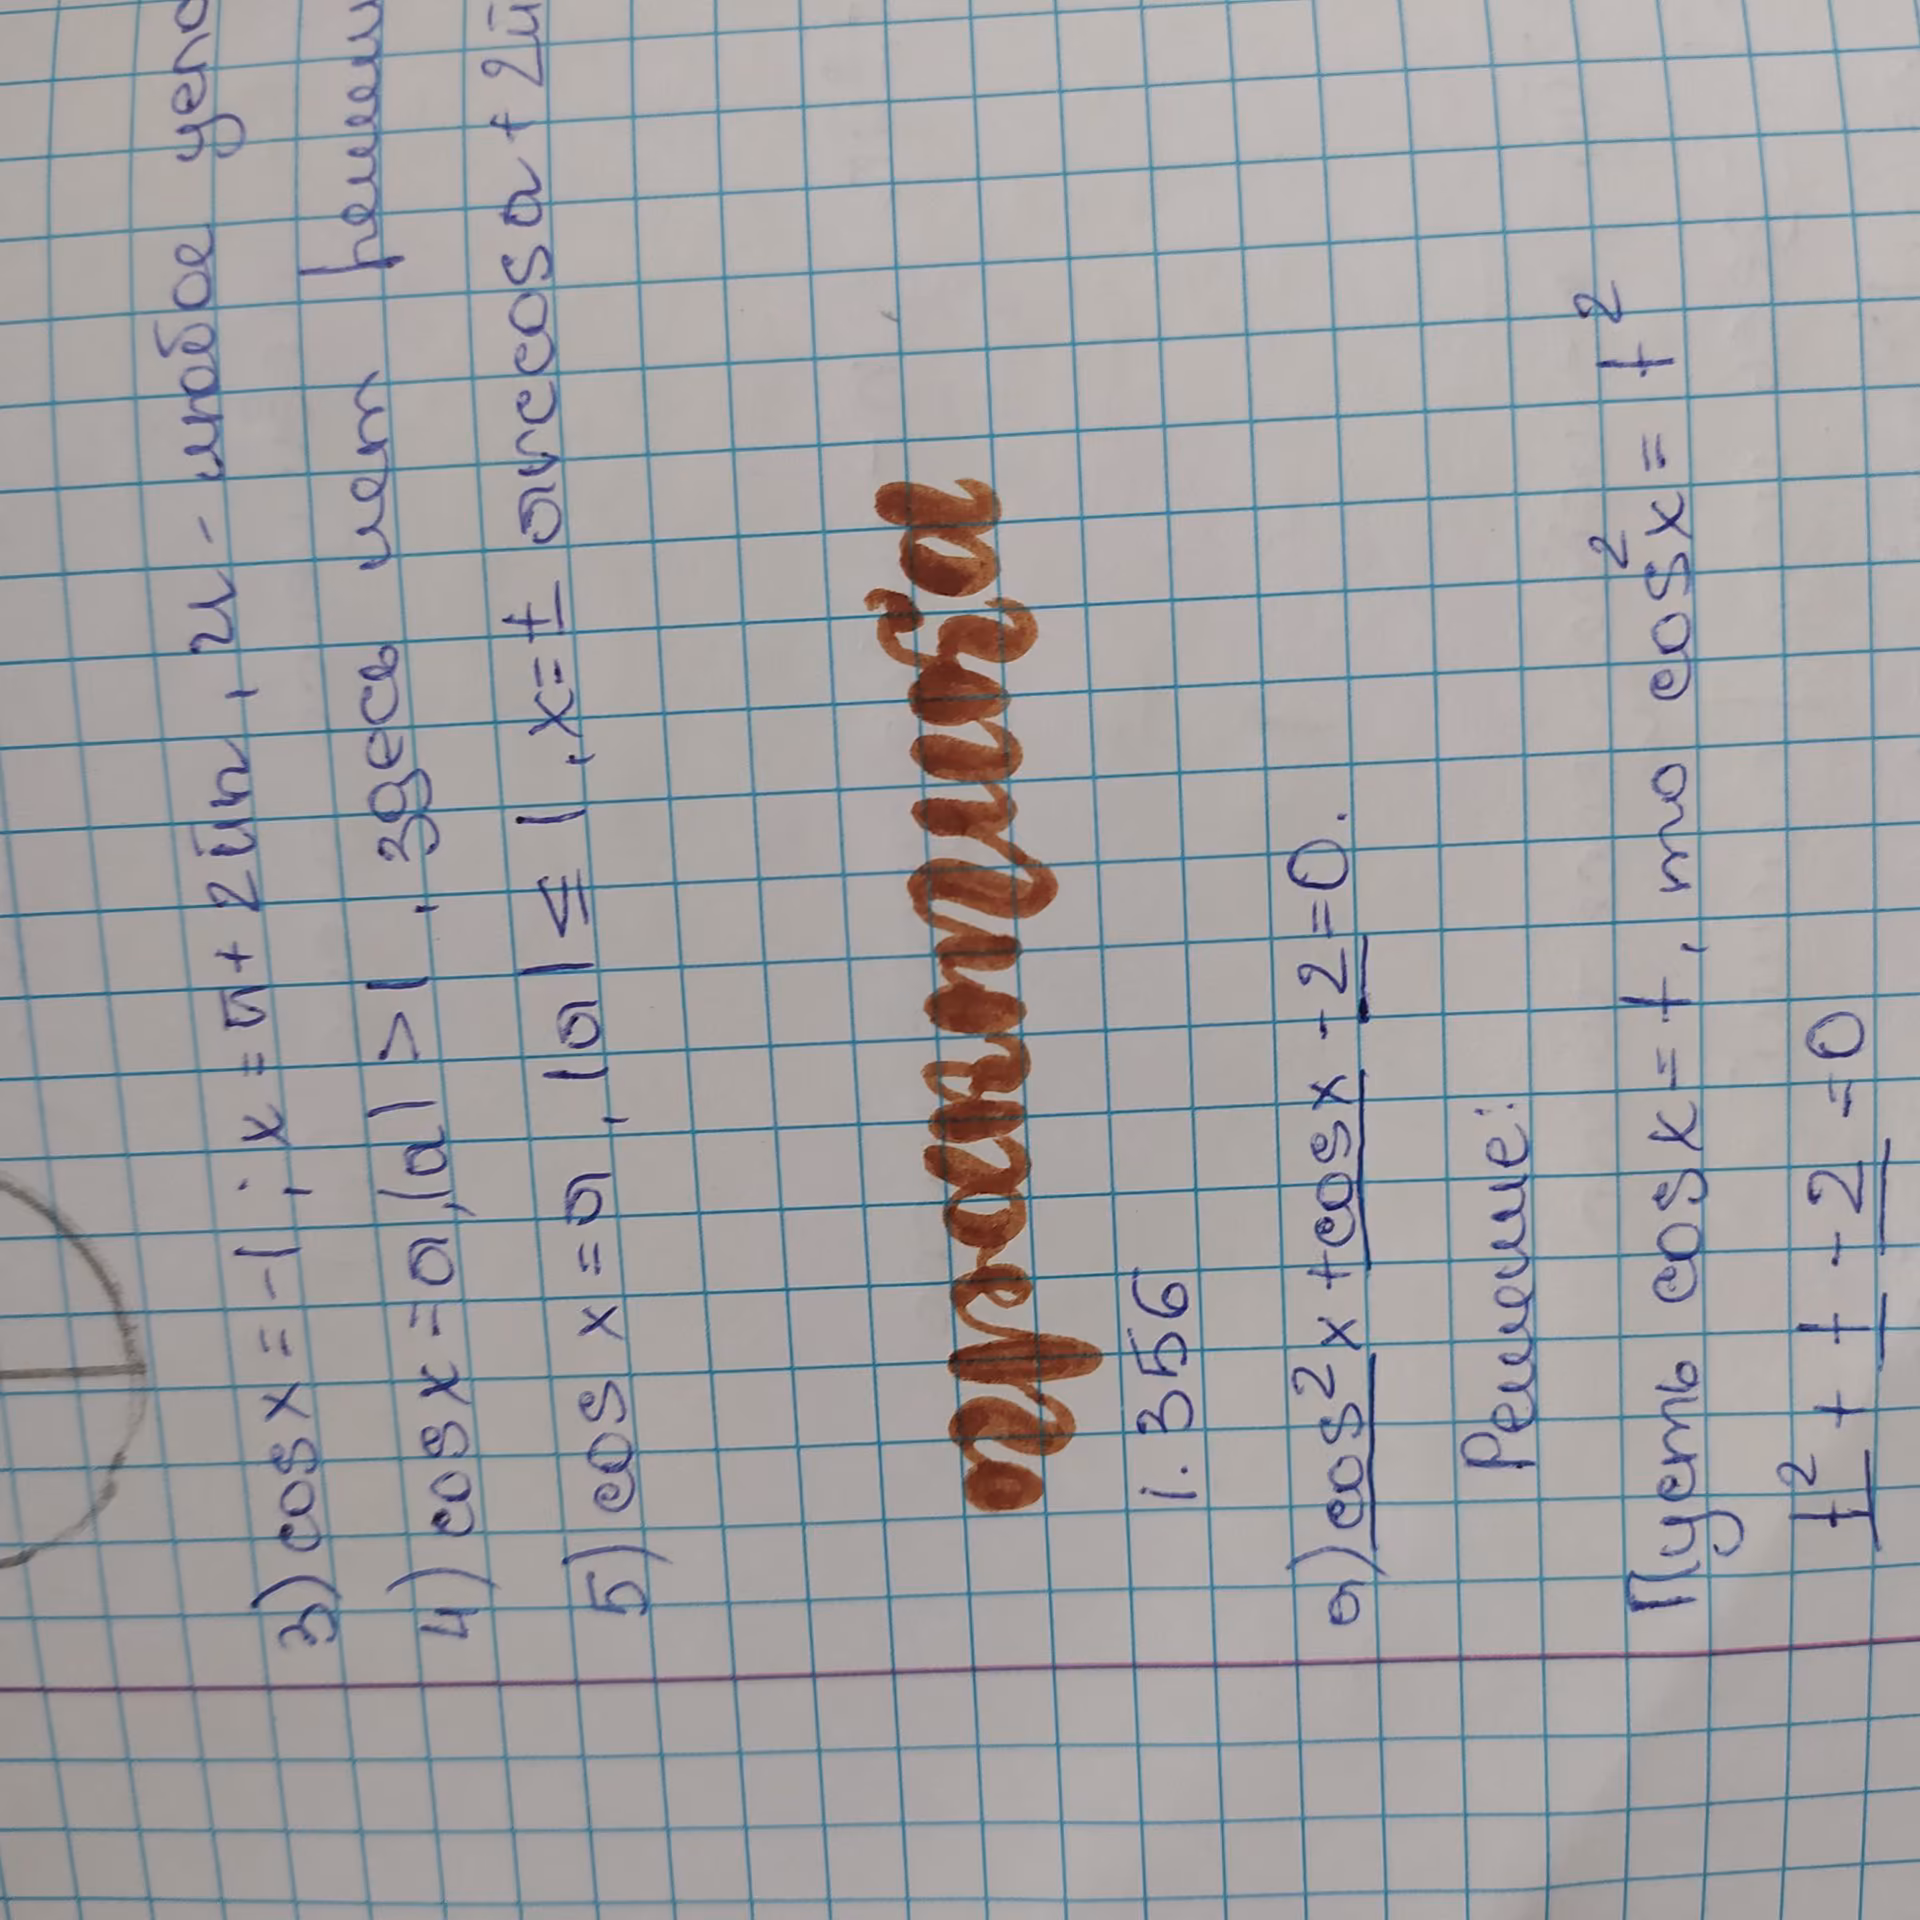 3) cos x = -1; x = π + 2πn, n - любое
4) cos x = a, |a| > 1, здесь нет
5) cos x = a, |a| ≤ 1, x = ± arccos a + 2π
1. 356
а) cos² x + cos x - 2 = 0.
Решение:
Пусть cos x = t, то cos² x = t²
t² + t - 2 = 0